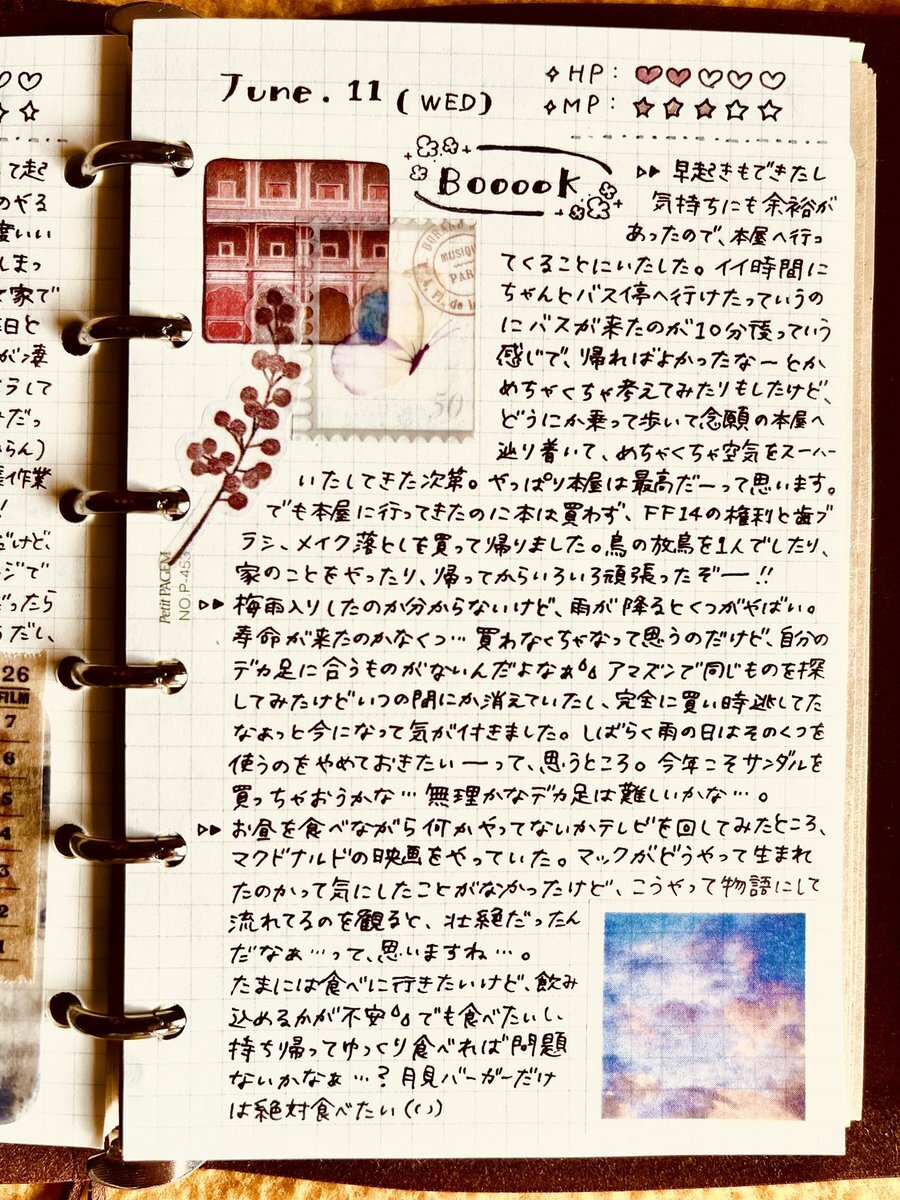 て起
のやる
度いい
しまっ
て家で
日と
が凄
うして
みだっ
らん)
作業
！
だけど、
ジで
だったら
うだし、
26
FILM
7
6
5
4
3
2
1
June. 11 (WED)
HP:
MP:
Booook
MUSIQUE
PAR
50
Petit PAGEM
NO.P-453
▷▷ 早起きもできたし
気持ちにも余裕が
あったので、本屋へ行っ
てくることにいたした。イイ時間に
ちゃんとバス停へ行けたっていうの
にバスが来たのが10分後っていう
感じで、帰ればよかったなーとか
めちゃくちゃ考えてみたりもしたけど、
どうにか乗って歩いて念願の本屋へ
辿り着いて、めちゃくちゃ空気をスーハー
いたしてきた次第。やっぱり本屋は最高だーって思います。
でも本屋に行ってきたのに本は買わず、FF14の権利と歯ブ
ラシ、メイク落としを買って帰りました。鳥の放鳥を1人でしたり、
家のことをやったり、帰ってからいろいろ頑張ったぞー!!
▷▷ 梅雨入りしたのか分からないけど、雨が降るとくつがやばい。
寿命が来たのかなくつ… 買わなくちゃなって思うのだけど、自分の
デカ足に合うものがないんだよなぁ アマズンで同じものを探
してみたけどいつの間にか消えていたし、完全に買い時逃してた
なぁっと今になって気が付きました。しばらく雨の日はそのくつを
使うのをやめておきたいーって、思うところ。今年こそサンダルを
買っちゃおうかな… 無理かなデカ足は難しいかな…。
▷▷ お昼を食べながら何かやってないかテレビを回してみたところ、
マクドナルドの映画をやっていた。マックがどうやって生まれ
たのかって気にしたことがなかったけど、こうやって物語にして
流れてるのを観ると、壮絶だったん
だなぁ…って、思いますね…。
たまには食べに行きたいけど、飲み
込めるかが不安 でも食べたいし
持ち帰ってゆっくり食べれば問題
ないかなぁ…？月見バーガーだけ
は絶対食べたい